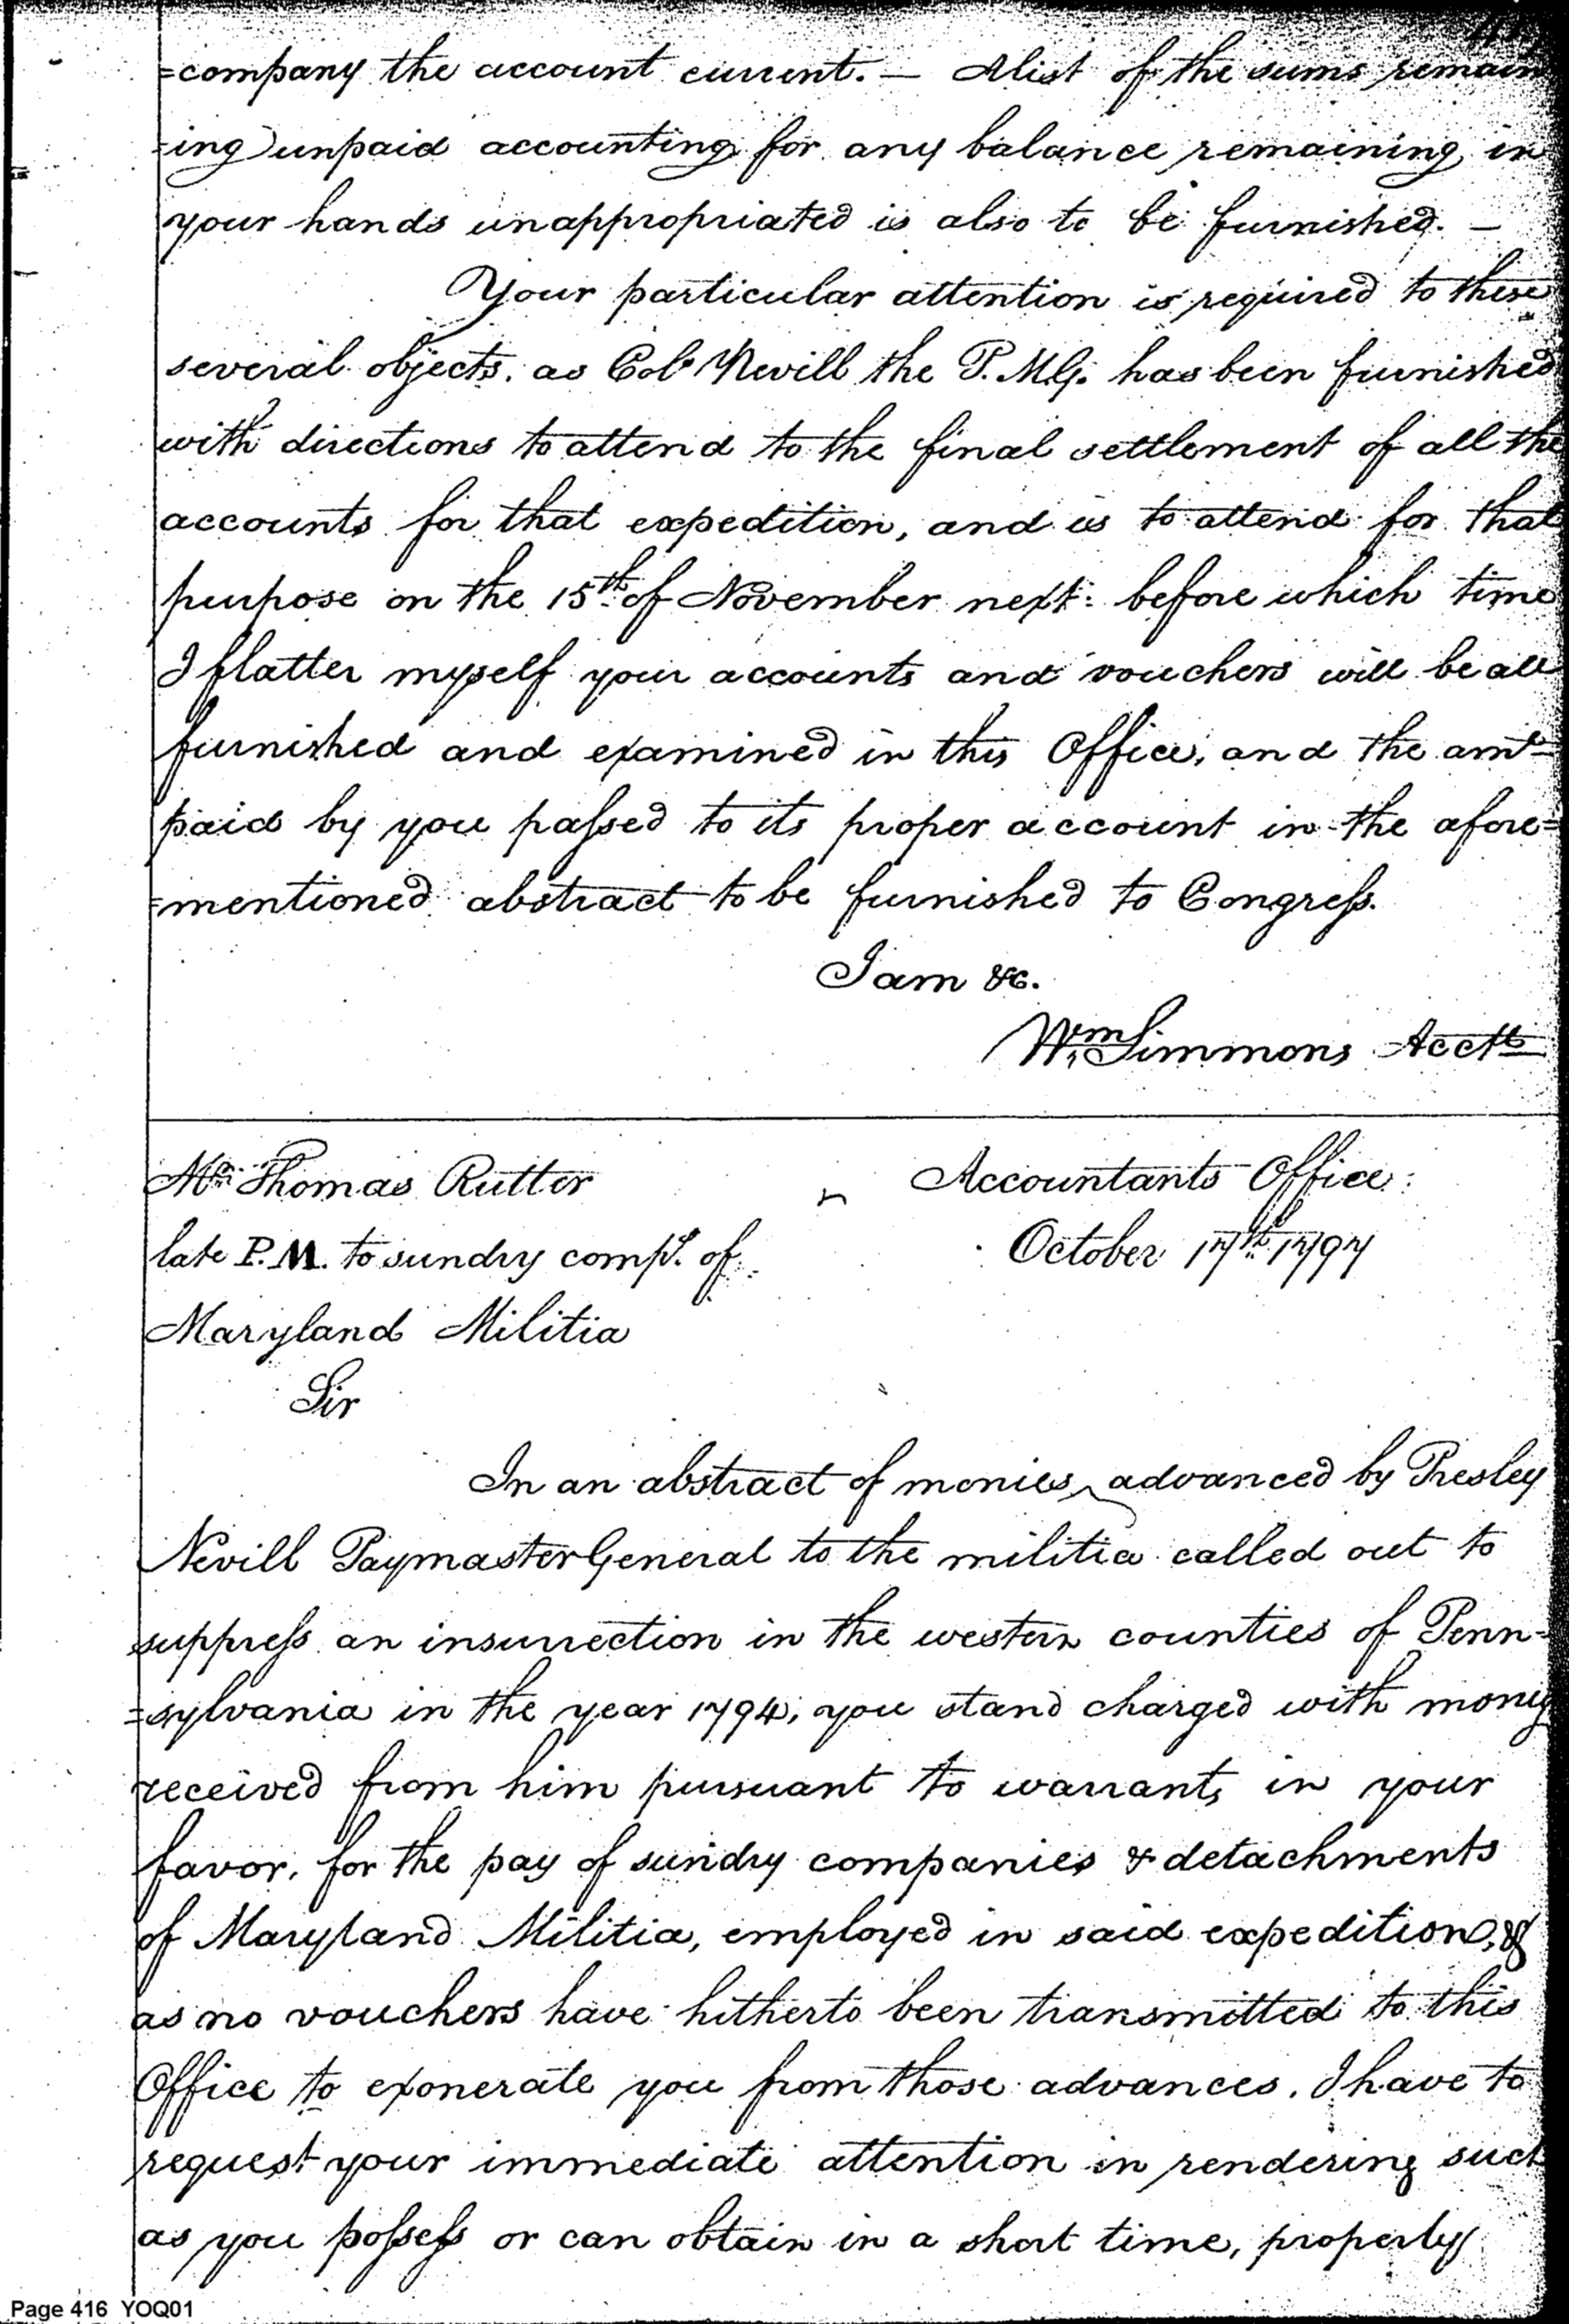 =company the account current. — A list of the sums remain
=ing unpaid accounting for any balance remaining in
your hands unappropriated is also to be furnished. —
Your particular attention is required to these
several objects, as Col. Nevill the P.M.G. has been furnished
with directions to attend to the final settlement of all the
accounts for that expedition, and is to attend for that
purpose on the 15th of November next: before which time
I flatter myself your accounts and vouchers will be all
furnished and examined in this Office, and the amt
paid by you passed to its proper account in the afore=
=mentioned abstract to be furnished to Congress.
I am &c.
Wm Simmons Acctt
Mr. Thomas Rutter
late P.M. to sundry comps. of
Maryland Militia
Accountants Office
October 17th 1797
Sir
In an abstract of monies advanced by Presley
Nevill Paymaster General to the militia called out to
suppress an insurrection in the western counties of Penn=
=sylvania in the year 1794, you stand charged with money
received from him pursuant to warrants in your
favor, for the pay of sundry companies & detachments
of Maryland Militia, employed in said expedition, &
as no vouchers have hitherto been transmitted to this
Office to exonerate you from those advances. I have to
request your immediate attention in rendering such
as you possess or can obtain in a short time, properly
Page 416 YOQ01